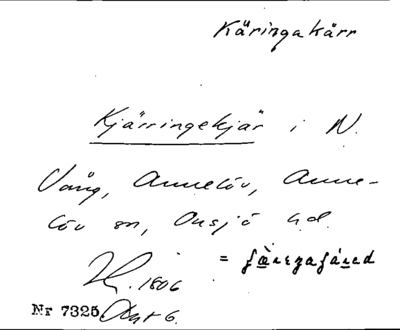 Käringakärr
Kjärringekjär i N.
Vång, Annelöv, Anne-
löv sn, Onsjö hd.
1806
Nr 7325 Akt 6.